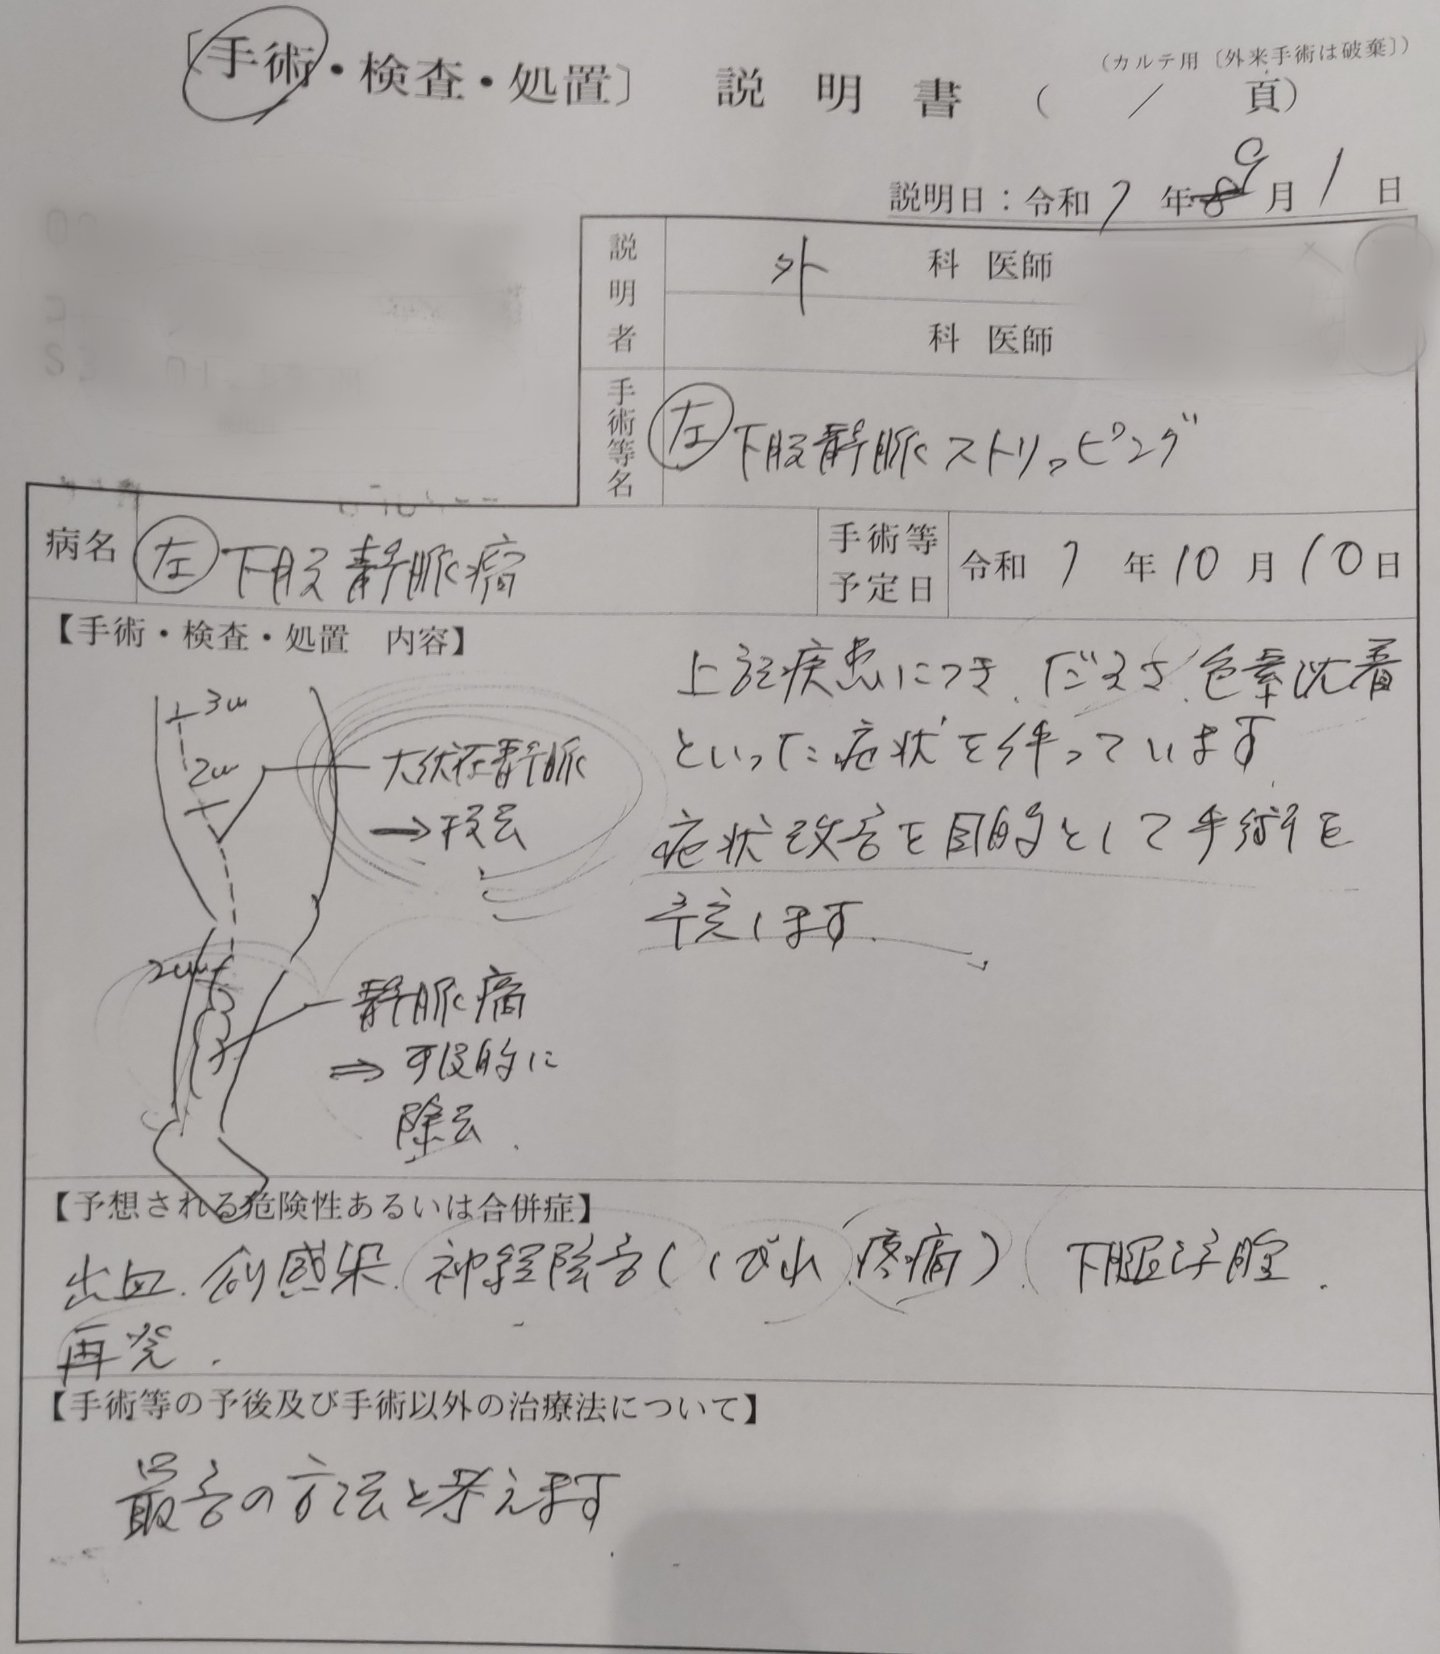 （カルテ用〔外来手術は破棄〕）
〔手術・検査・処置〕 説明書（ / 頁）
説明日：令和7年8 9月1日
説明者
外科 医師
科 医師
手術等名
左 下肢静脈ストリッピング
病名
左 下肢静脈瘤
手術等予定日
令和7年10月10日
【手術・検査・処置 内容】
上記疾患につき、だるさ、色素沈着
といった症状を伴っています。
症状改善を目的として手術を
予定します。
3cm
2cm
大伏在静脈
→抜去
静脈瘤
⇒可及的に
除去.
【予想される危険性あるいは合併症】
出血、創感染、神経障害（しびれ、疼痛）、下腿浮腫、
再発.
【手術等の予後及び手術以外の治療法について】
最善の方法と考えます